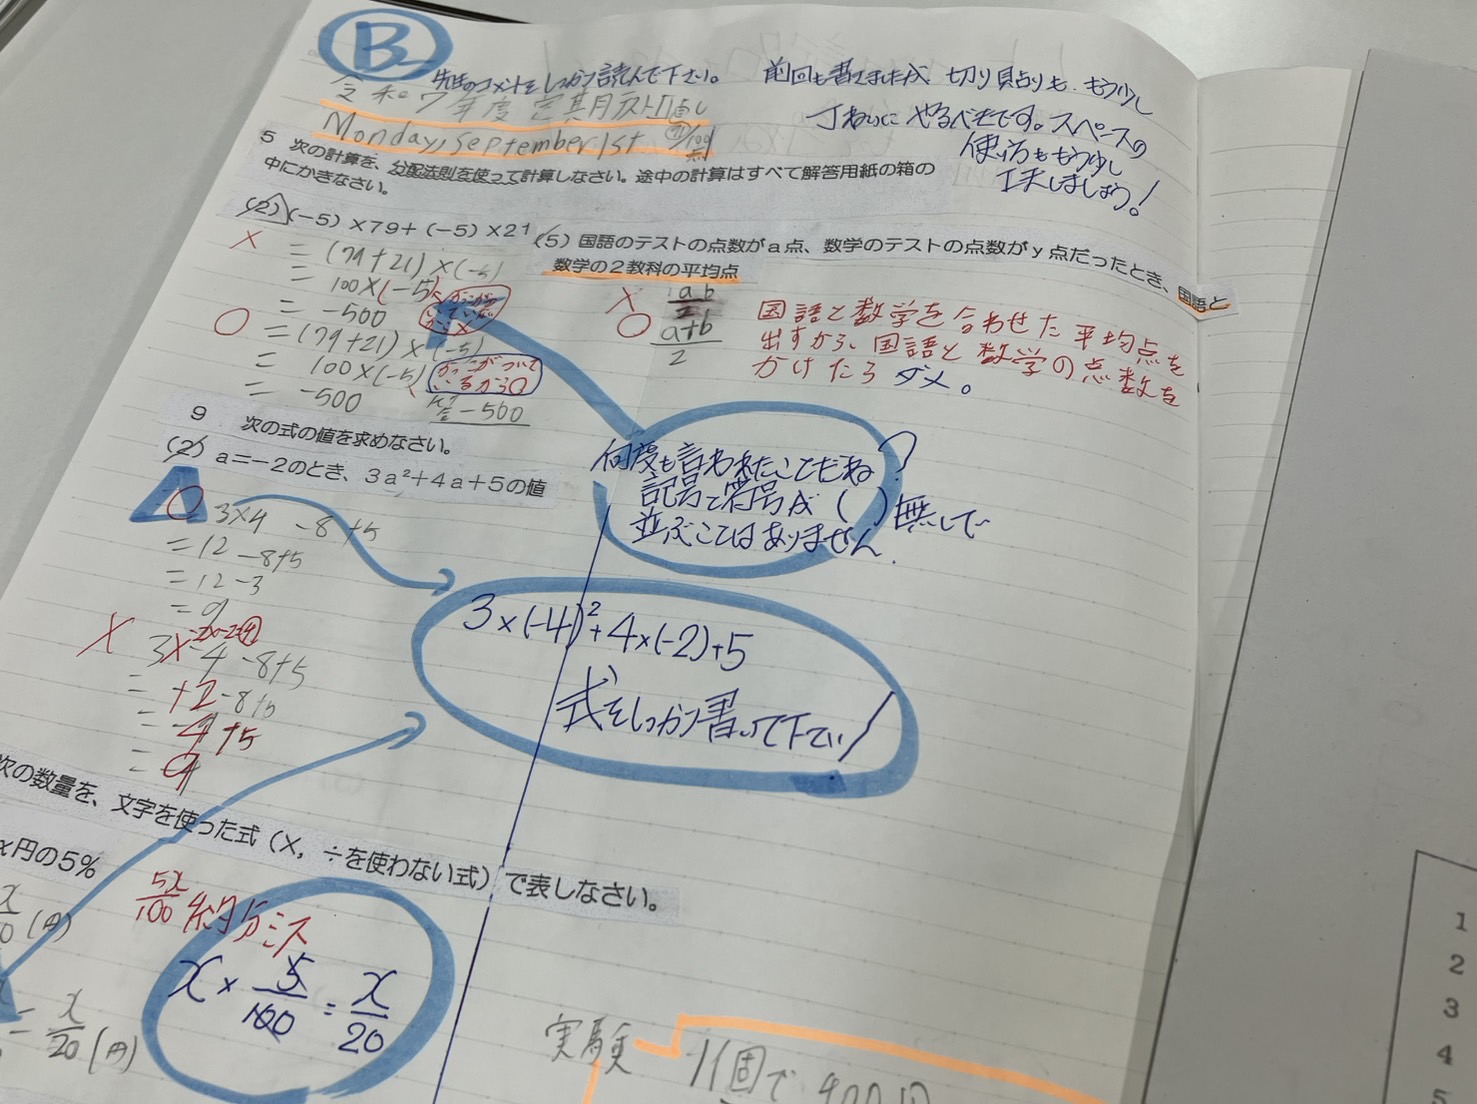 B
先生のコメントをしっかり読んで下さい。
前回も書きましたが 切り貼りも.もう少し
丁ねいにやるべきです。スペースの
使い方ももう少し
工夫しましょう!
令和7年度 定期テスト直し
Monday, September 1st
5 次の計算を、分配法則を使って計算しなさい。途中の計算はすべて解答用紙の箱の
中にかきなさい。
(2) (-5)×79+(-5)×21
× = (79+21)×(-5)
= 100×(-5)
= -500
○ = (79+21)×(-5)
= 100×(-5)
かっこがついて
いるから○
= -500
-500
(5) 国語のテストの点数がa点、数学のテストの点数がy点だったとき、国語と
数学の2教科の平均点
× ab/2
○ a+b/2
国語と数学を合わせた平均点を
出すから、国語と数学の点数を
かけたらダメ。
何度も言われたことだね?
記号と符号が( )無しで
並ぶことはありません.
9 次の式の値を求めなさい。
(2) a=-2のとき、3a²+4a+5の値
○ 3×4 -8+5
= 12 -8+5
= 12-3
= 9
3×(-4)²+4×(-2)+5
式をしっかり書いて下さい
× 3×-4 -8+5
= +2-8+5
= -4+5
= 9
次の数量を、文字を使った式(×,÷を使わない式)で表しなさい。
x円の5%
5x/100 約分ミス
x × 5/100 = x/20
= x/20 (円)
実験
11個で 400円
1
2
3
4
5